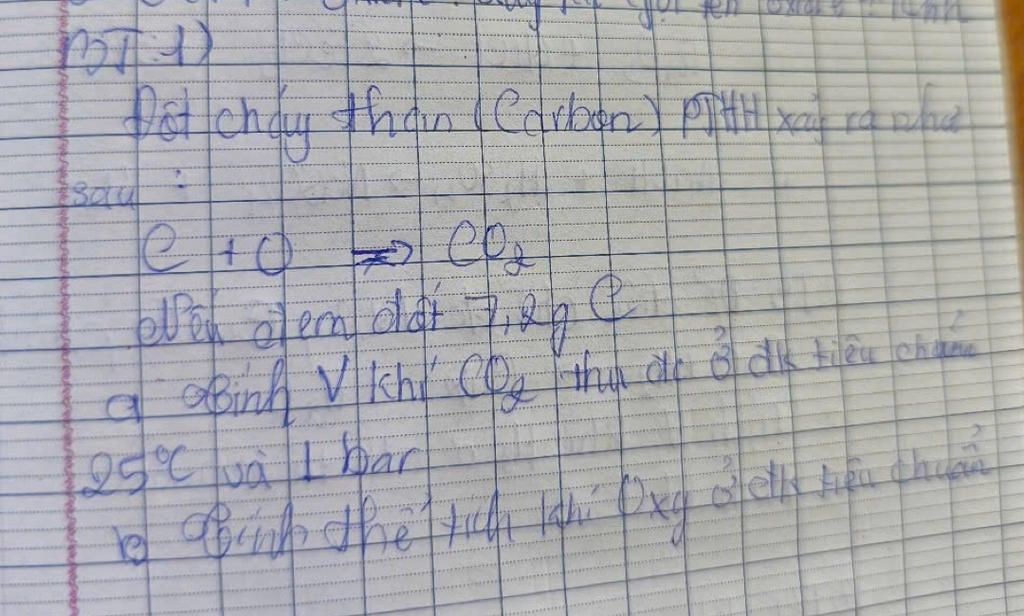 BT 1)
Đốt cháy than (Carbon) PTHH xảy ra như
sau :
C + O → CO2
Nếu đem đốt 7,2g C
a Tính V khí CO2 thu đc ở đk tiêu chuẩn
25°C và 1 bar
b Tính thể tích khí Oxy ở đk tiêu chuẩn